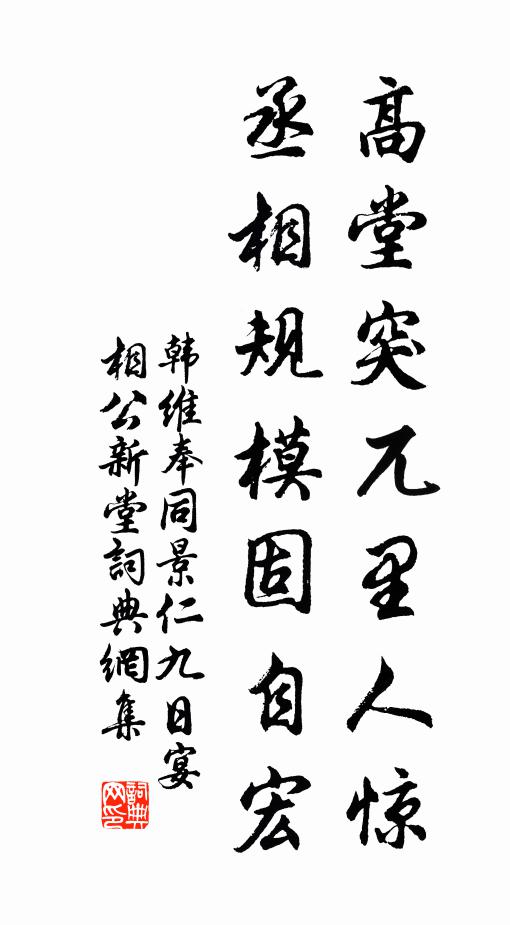 高堂突兀里人惊
丞相规模固自宏
韩维奉同景仁九日宴
相公新堂詞典網集
詞典网印